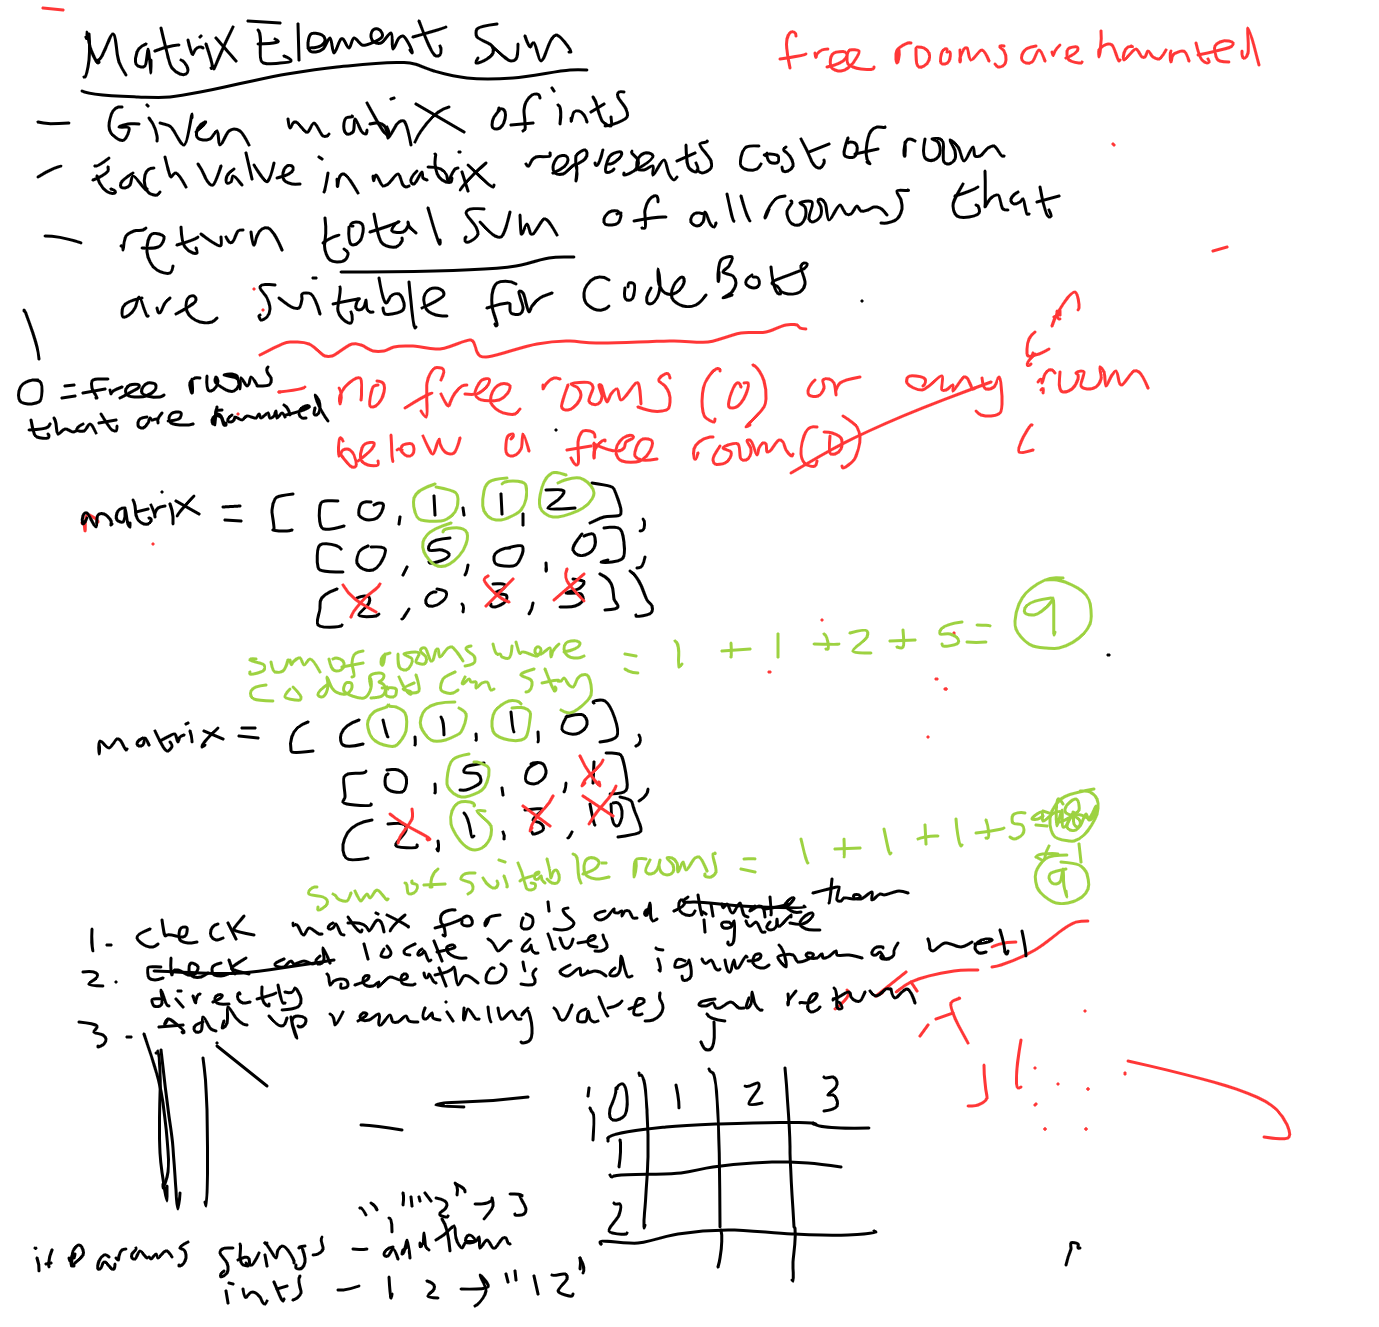 Matrix Element Sum
free rooms are haunted
- Given matrix of ints
- Each value in matrix represents cost of room
- return total sum of all rooms that
are suitable for CodeBots
0 = free rooms
that are haunted
- no free rooms (0) or any room
below a free room (0)
matrix = [ [ 0, 1, 1, 2],
[0, 5, 0, 0],
[2, 0, 3, 3]]
sum of rooms where
CodeBots can stay
= 1 + 1 + 2 + 5 = 9
matrix = [ [1, 1, 1, 0],
[0, 5, 0, 1],
[2, 1, 3, 10]
sum of suitable rooms = 1 + 1 + 1 + 5
+ 1
9
1. check matrix for 0's and ignore them
2. check and locate values
directly beneath 0's and ignore them as well
3. Add up remaining values and return
j
i 0 1 2 3
1
2
if params strings - add them
ints - 1 2 → "12"